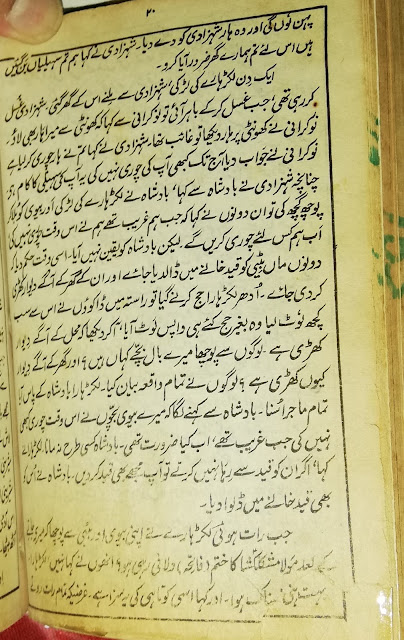 ۲۰
پہن لوں گی اور وہ ہار شہزادی کو دے دیا۔ شہزادی نے کہا ہم تم سہیلیاں بن گئیں
ہیں اس لئے تم ہمارے گھر ضرور آیا کرو۔
ایک دن لکڑہارے کی لڑکی شہزادی سے ملنے اس کے گھر گئی، شہزادی غسل
کر رہی تھی، جب غسل کر کے باہر آئی تو نوکرانی سے کہا کہ کھونٹی سے میرا ہار بھی لاؤ۔
نوکرانی نے کھونٹی پر ہار دیکھا تو غائب تھا۔ شہزادی نے کہا تم نے ہار چوری کر لیا ہے
نوکرانی نے جواب دیا آج تک کبھی آپ کی چوری نہیں کی یہ آپ کی سہیلی کا کام ہے
چنانچہ شہزادی نے بادشاہ سے کہا، بادشاہ نے لکڑہارے کی لڑکی اور بیوی کو بلا کر
پوچھ گچھ کی تو ان دونوں نے کہا کہ جب ہم غریب تھے ہم نے اس وقت چوری نہیں کی
اب ہم کس لئے چوری کریں گے۔ لیکن بادشاہ کو یقین نہیں آیا۔ اسی وقت حکم دیا کہ
دونوں ماں بیٹی کو قید خانے میں ڈال دیا جائے اور ان کے گھر کے آگے دیوار کھڑی
کر دی جائے۔ اُدھر لکڑہارا حج کرنے گیا تو راستہ میں ڈاکوؤں نے اس سے سب
کچھ لوٹ لیا وہ بغیر حج کئے ہی واپس لوٹ آیا، آ کر دیکھا کہ محل کے آگے دیوار
کھڑی ہے۔ لوگوں سے پوچھا میرے بال بچے کہاں ہیں؟ اور گھر کے آگے دیوار
کیوں کھڑی ہے؟ لوگوں نے تمام واقعہ بیان کیا۔ لکڑہارا بادشاہ کے پاس آیا
تمام ماجرا سُنا۔ بادشاہ سے کہنے لگا کہ میرے بیوی بچوں نے اس وقت چوری بھی
نہیں کی جب غریب تھے، اب کیا ضرورت تھی۔ بادشاہ کسی طرح نہ مانا لکڑہارے نے
کہا، اگر ان کو قید سے رہا نہیں کرتے تو آپ مجھے بھی قید کر دیں۔ بادشاہ نے اُس کو
بھی قید خانے میں ڈلوا دیا۔
جب رات ہوئی لکڑہارے نے اپنی بیوی اور بیٹی سے پوچھا کہ میرے
کے بعد مولا مشکل کشا کا ختم (فاتحہ) دلاتی رہی ہو؟ انھوں نے کہا نہیں لکڑہارا
بہت ہوا۔ اور کہا اسی کوتاہی کی یہ سزا ہے۔ غرضیکہ تمام رات روتے